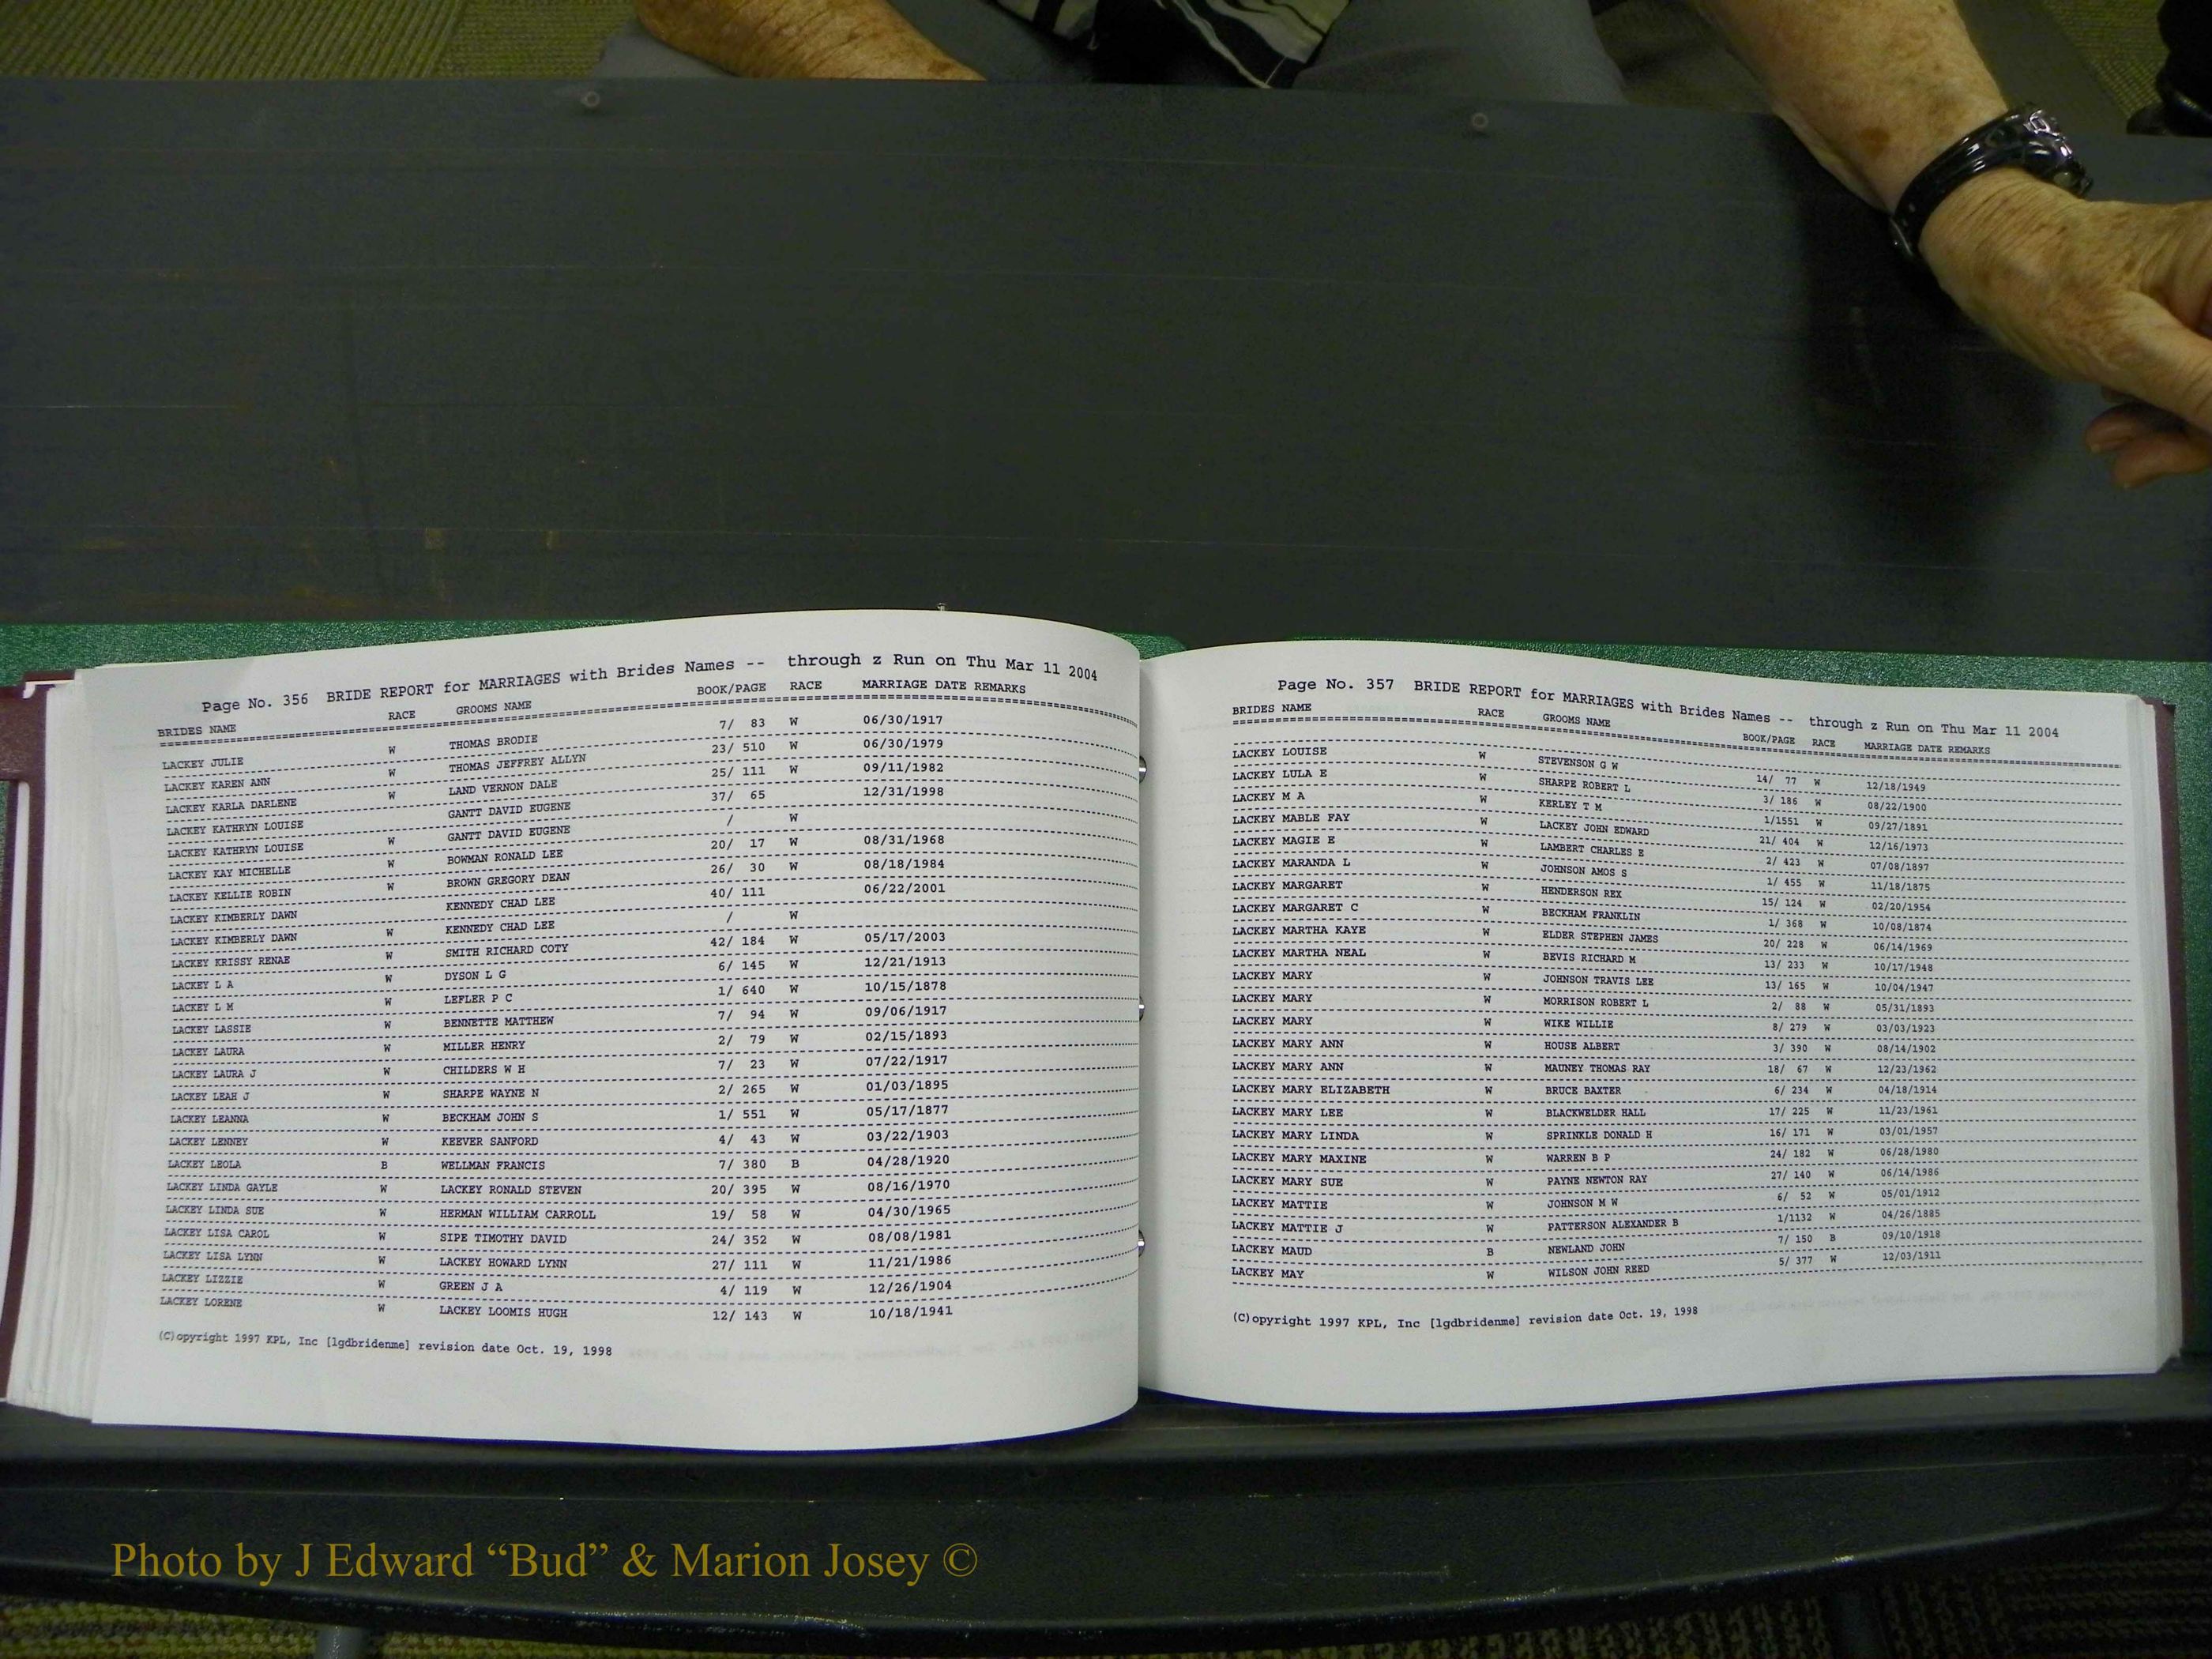 Page No. 356 BRIDE REPORT for MARRIAGES with Brides Names -- through z Run on Thu Mar 11 2004
BRIDES NAME RACE GROOMS NAME BOOK/PAGE RACE MARRIAGE DATE REMARKS
LACKEY JULIE W THOMAS BRODIE 7/ 83 W 06/30/1917
LACKEY KAREN ANN W THOMAS JEFFREY ALLYN 23/ 510 W 06/30/1979
LACKEY KARLA DARLENE W LAND VERNON DALE 25/ 111 W 09/11/1982
LACKEY KATHRYN LOUISE GANTT DAVID EUGENE 37/ 65 12/31/1998
LACKEY KATHRYN LOUISE W GANTT DAVID EUGENE / W
LACKEY KAY MICHELLE W BOWMAN RONALD LEE 20/ 17 W 08/31/1968
LACKEY KELLIE ROBIN W BROWN GREGORY DEAN 26/ 30 W 08/18/1984
LACKEY KIMBERLY DAWN KENNEDY CHAD LEE 40/ 111 06/22/2001
LACKEY KIMBERLY DAWN W KENNEDY CHAD LEE / W
LACKEY KRISSY RENAE W SMITH RICHARD COTY 42/ 184 W 05/17/2003
LACKEY L A W DYSON L G 6/ 145 W 12/21/1913
LACKEY L M W LEFLER P C 1/ 640 W 10/15/1878
LACKEY LASSIE W BENNETTE MATTHEW 7/ 94 W 09/06/1917
LACKEY LAURA W MILLER HENRY 2/ 79 W 02/15/1893
LACKEY LAURA J W CHILDERS W H 7/ 23 W 07/22/1917
LACKEY LEAH J W SHARPE WAYNE N 2/ 265 W 01/03/1895
LACKEY LEANNA W BECKHAM JOHN S 1/ 551 W 05/17/1877
LACKEY LENNEY W KEEVER SANFORD 4/ 43 W 03/22/1903
LACKEY LEOLA B WELLMAN FRANCIS 7/ 380 B 04/28/1920
LACKEY LINDA GAYLE W LACKEY RONALD STEVEN 20/ 395 W 08/16/1970
LACKEY LINDA SUE W HERMAN WILLIAM CARROLL 19/ 58 W 04/30/1965
LACKEY LISA CAROL W SIPE TIMOTHY DAVID 24/ 352 W 08/08/1981
LACKEY LISA LYNN W LACKEY HOWARD LYNN 27/ 111 W 11/21/1986
LACKEY LIZZIE W GREEN J A 4/ 119 W 12/26/1904
LACKEY LORENE W LACKEY LOOMIS HUGH 12/ 143 W 10/18/1941
(C)opyright 1997 KPL, Inc [lgdbridenme] revision date Oct. 19, 1998
Page No. 357 BRIDE REPORT for MARRIAGES with Brides Names -- through z Run on Thu Mar 11 2004
BRIDES NAME RACE GROOMS NAME BOOK/PAGE RACE MARRIAGE DATE REMARKS
LACKEY LOUISE W STEVENSON G W 14/ 77 W 12/18/1949
LACKEY LULA E W SHARPE ROBERT L 3/ 186 W 08/22/1900
LACKEY M A W KERLEY T M 1/1551 W 09/27/1891
LACKEY MABLE FAY W LACKEY JOHN EDWARD 21/ 404 W 12/16/1973
LACKEY MAGIE E W LAMBERT CHARLES E 2/ 423 W 07/08/1897
LACKEY MARANDA L W JOHNSON AMOS S 1/ 455 W 11/18/1875
LACKEY MARGARET W HENDERSON REX 15/ 124 W 02/20/1954
LACKEY MARGARET C W BECKHAM FRANKLIN 1/ 368 W 10/08/1874
LACKEY MARTHA KAYE W ELDER STEPHEN JAMES 20/ 228 W 06/14/1969
LACKEY MARTHA NEAL W BEVIS RICHARD M 13/ 233 W 10/17/1948
LACKEY MARY W JOHNSON TRAVIS LEE 13/ 165 W 10/04/1947
LACKEY MARY W MORRISON ROBERT L 2/ 88 W 05/31/1893
LACKEY MARY W WIKE WILLIE 8/ 279 W 03/03/1923
LACKEY MARY ANN W HOUSE ALBERT 3/ 390 W 08/14/1902
LACKEY MARY ANN W MAUNEY THOMAS RAY 18/ 67 W 12/23/1962
LACKEY MARY ELIZABETH W BRUCE BAXTER 6/ 234 W 04/18/1914
LACKEY MARY LEE W BLACKWELDER HALL 17/ 225 W 11/23/1961
LACKEY MARY LINDA W SPRINKLE DONALD H 16/ 171 W 03/01/1957
LACKEY MARY MAXINE W WARREN B P 24/ 182 W 06/28/1980
LACKEY MARY SUE W PAYNE NEWTON RAY 27/ 140 W 06/14/1986
LACKEY MATTIE W JOHNSON M W 6/ 52 W 05/01/1912
LACKEY MATTIE J W PATTERSON ALEXANDER B 1/1132 W 04/26/1885
LACKEY MAUD B NEWLAND JOHN 7/ 150 B 09/10/1918
LACKEY MAY W WILSON JOHN REED 5/ 377 W 12/03/1911
(C)opyright 1997 KPL, Inc [lgdbridenme] revision date Oct. 19, 1998
Photo by J Edward “Bud” & Marion Josey ©